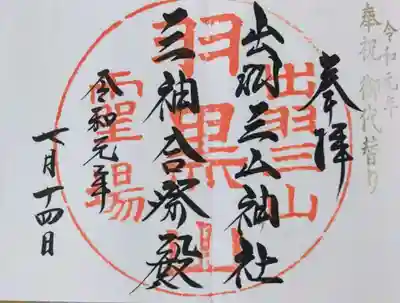 令和元年
奉祝 御代替り
奉拝
出羽三山神社
三神合祭殿
令和元年
七月十四日
出羽三山
羽黒山
霊場